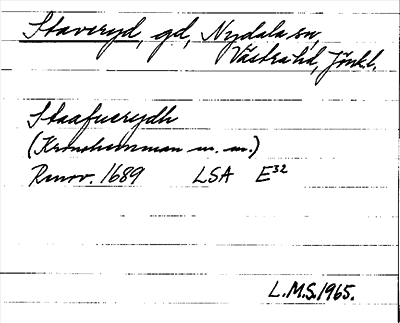 Staveryd, gd, Nydala sn,
Västra hd, Jönk l.
Staafuerydh
(Kronohemman m. m.)
Renov. 1689 LSA E32
L.M.S. 1965.